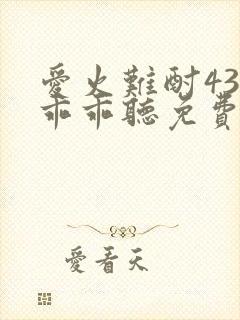 愛火難酎43
乖乖聽免費
愛看天